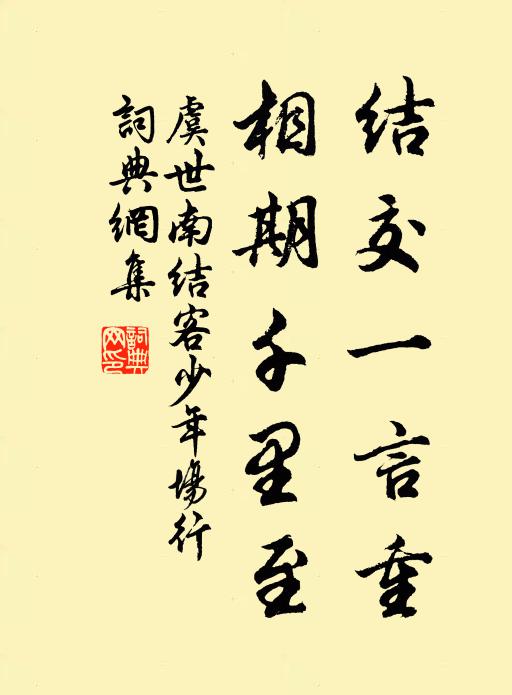 结交一言重
相期千里至
虞世南结客少年場行
詞典網集
詞典网印